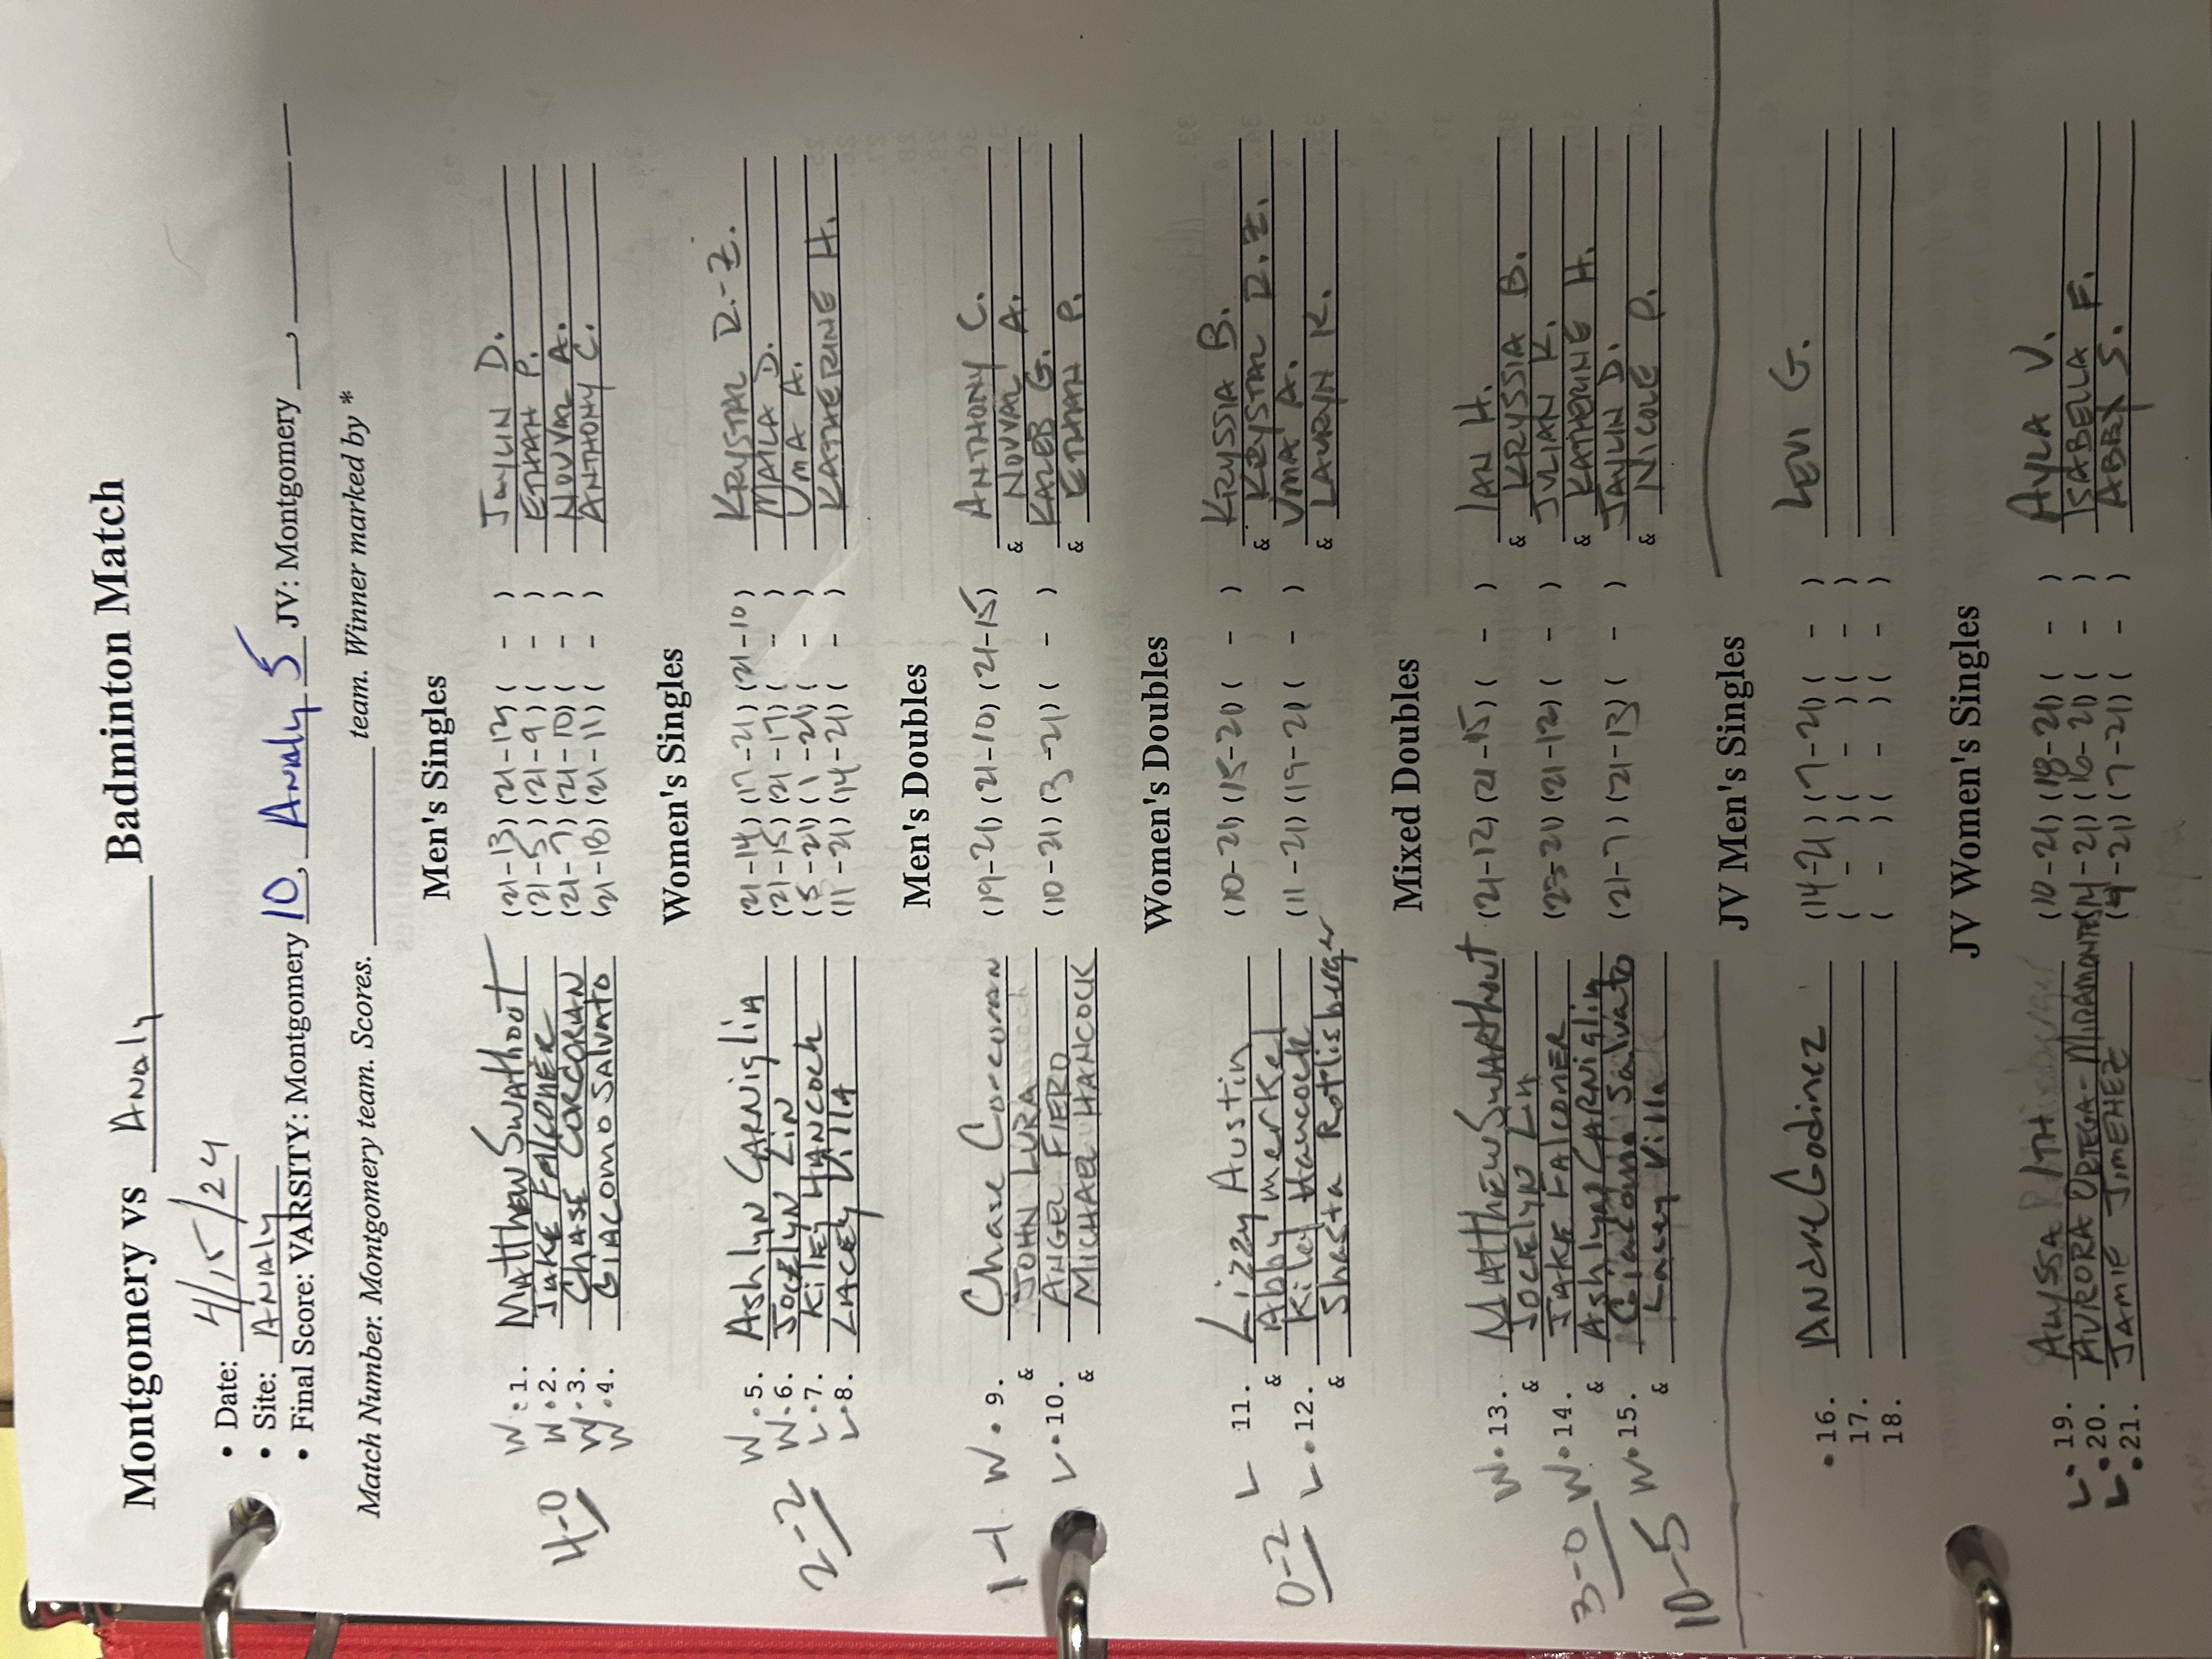 Montgomery vs Analy Badminton Match
• Date: 4/15/24
• Site: ANALY
• Final Score: VARSITY: Montgomery 10, Analy 5 JV: Montgomery ___, ___
Match Number. Montgomery team. Scores. ___ team. Winner marked by *
Men's Singles
W • 1. Matthew Swathout (21-13) (21-12) ( - ) JAYLIN D.
W • 2. JAKE FALCONER (21-5) (21-9) ( - ) ETHAN P.
W • 3. CHASE CORCORAN (21-7) (21-10) ( - ) NOUVAL A.
W • 4. GIACOMO SALVATO (21-18) (21-11) ( - ) ANTHONY C.
4-0
Women's Singles
W • 5. Ashlyn CARNiglia (21-14) (17-21) (21-10) KRYSTAL R.-Z.
W • 6. JOCELYN LIN (21-15) (21-17) ( - ) MAILA D.
L • 7. KILEY HANCOCK (5-21) (1-21) ( - ) UMA A.
L • 8. LACEY Villa (11-21) (14-21) ( - ) KATHERINE H.
2-2
Men's Doubles
1-1 W • 9. Chase Corcoran (19-21) (21-10) (21-15) ANTHONY C.
& JOHN LURA & NOUVAL A.
L • 10. ANGEL FIERO (10-21) (3-21) ( - ) KALEB G.
& MICHAEL HANCOCK & ETHAN P.
Women's Doubles
L 11. Lizzy Austin (10-21) (15-21) ( - ) KRYSSIA B.
& Abby Merkel & KRYSTAL R.Z.
0-2 L • 12. Kiley Hancock (11-21) (19-21) ( - ) UMA A.
& Shasta Rotlisberger & LAURYN K.
Mixed Doubles
W • 13. MATTHEW SWARTHOUT (21-12) (21-15) ( - ) IAN H.
& JOCELYN Lin & KRYSSIA B.
W • 14. JAKE FALCONER (23-21) (21-12) ( - ) JULIAN K.
3-0 & Ashlyn CARNIGLIA & KATHERINE H.
W • 15. Giacomo Salvato (21-7) (21-13) ( - ) JAYLIN D.
& Lacey Villa & NICOLE P.
10-5
JV Men's Singles
• 16. ANDRE Godinez (14-21) (7-21) ( - ) LEVI G.
17. ( - ) ( - ) ( - )
18. ( - ) ( - ) ( - )
JV Women's Singles
L • 19. Alyssa PITH (10-21) (18-21) ( - ) AYLA V.
L • 20. AURORA ORTEGA-MIRAMONTES (14-21) (16-21) ( - ) ISABELLA F.
• 21. JAMIE JIMENEZ (4-21) (7-21) ( - ) ABBY S.